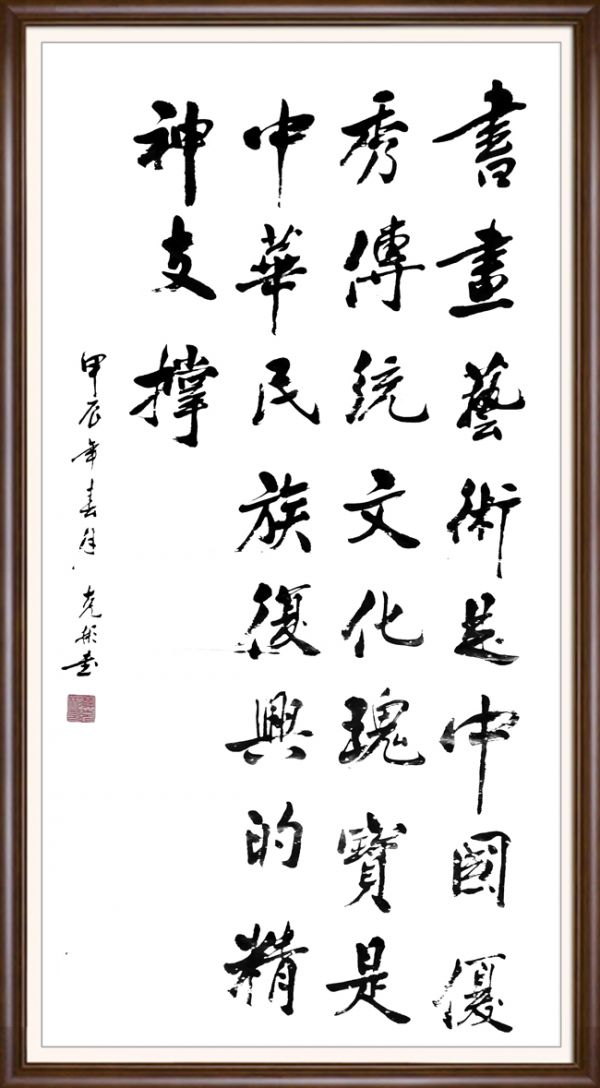 書畫藝術是中國優
秀傳統文化瑰寶是
中華民族復興的精
神支撑
甲辰年春月克彬书